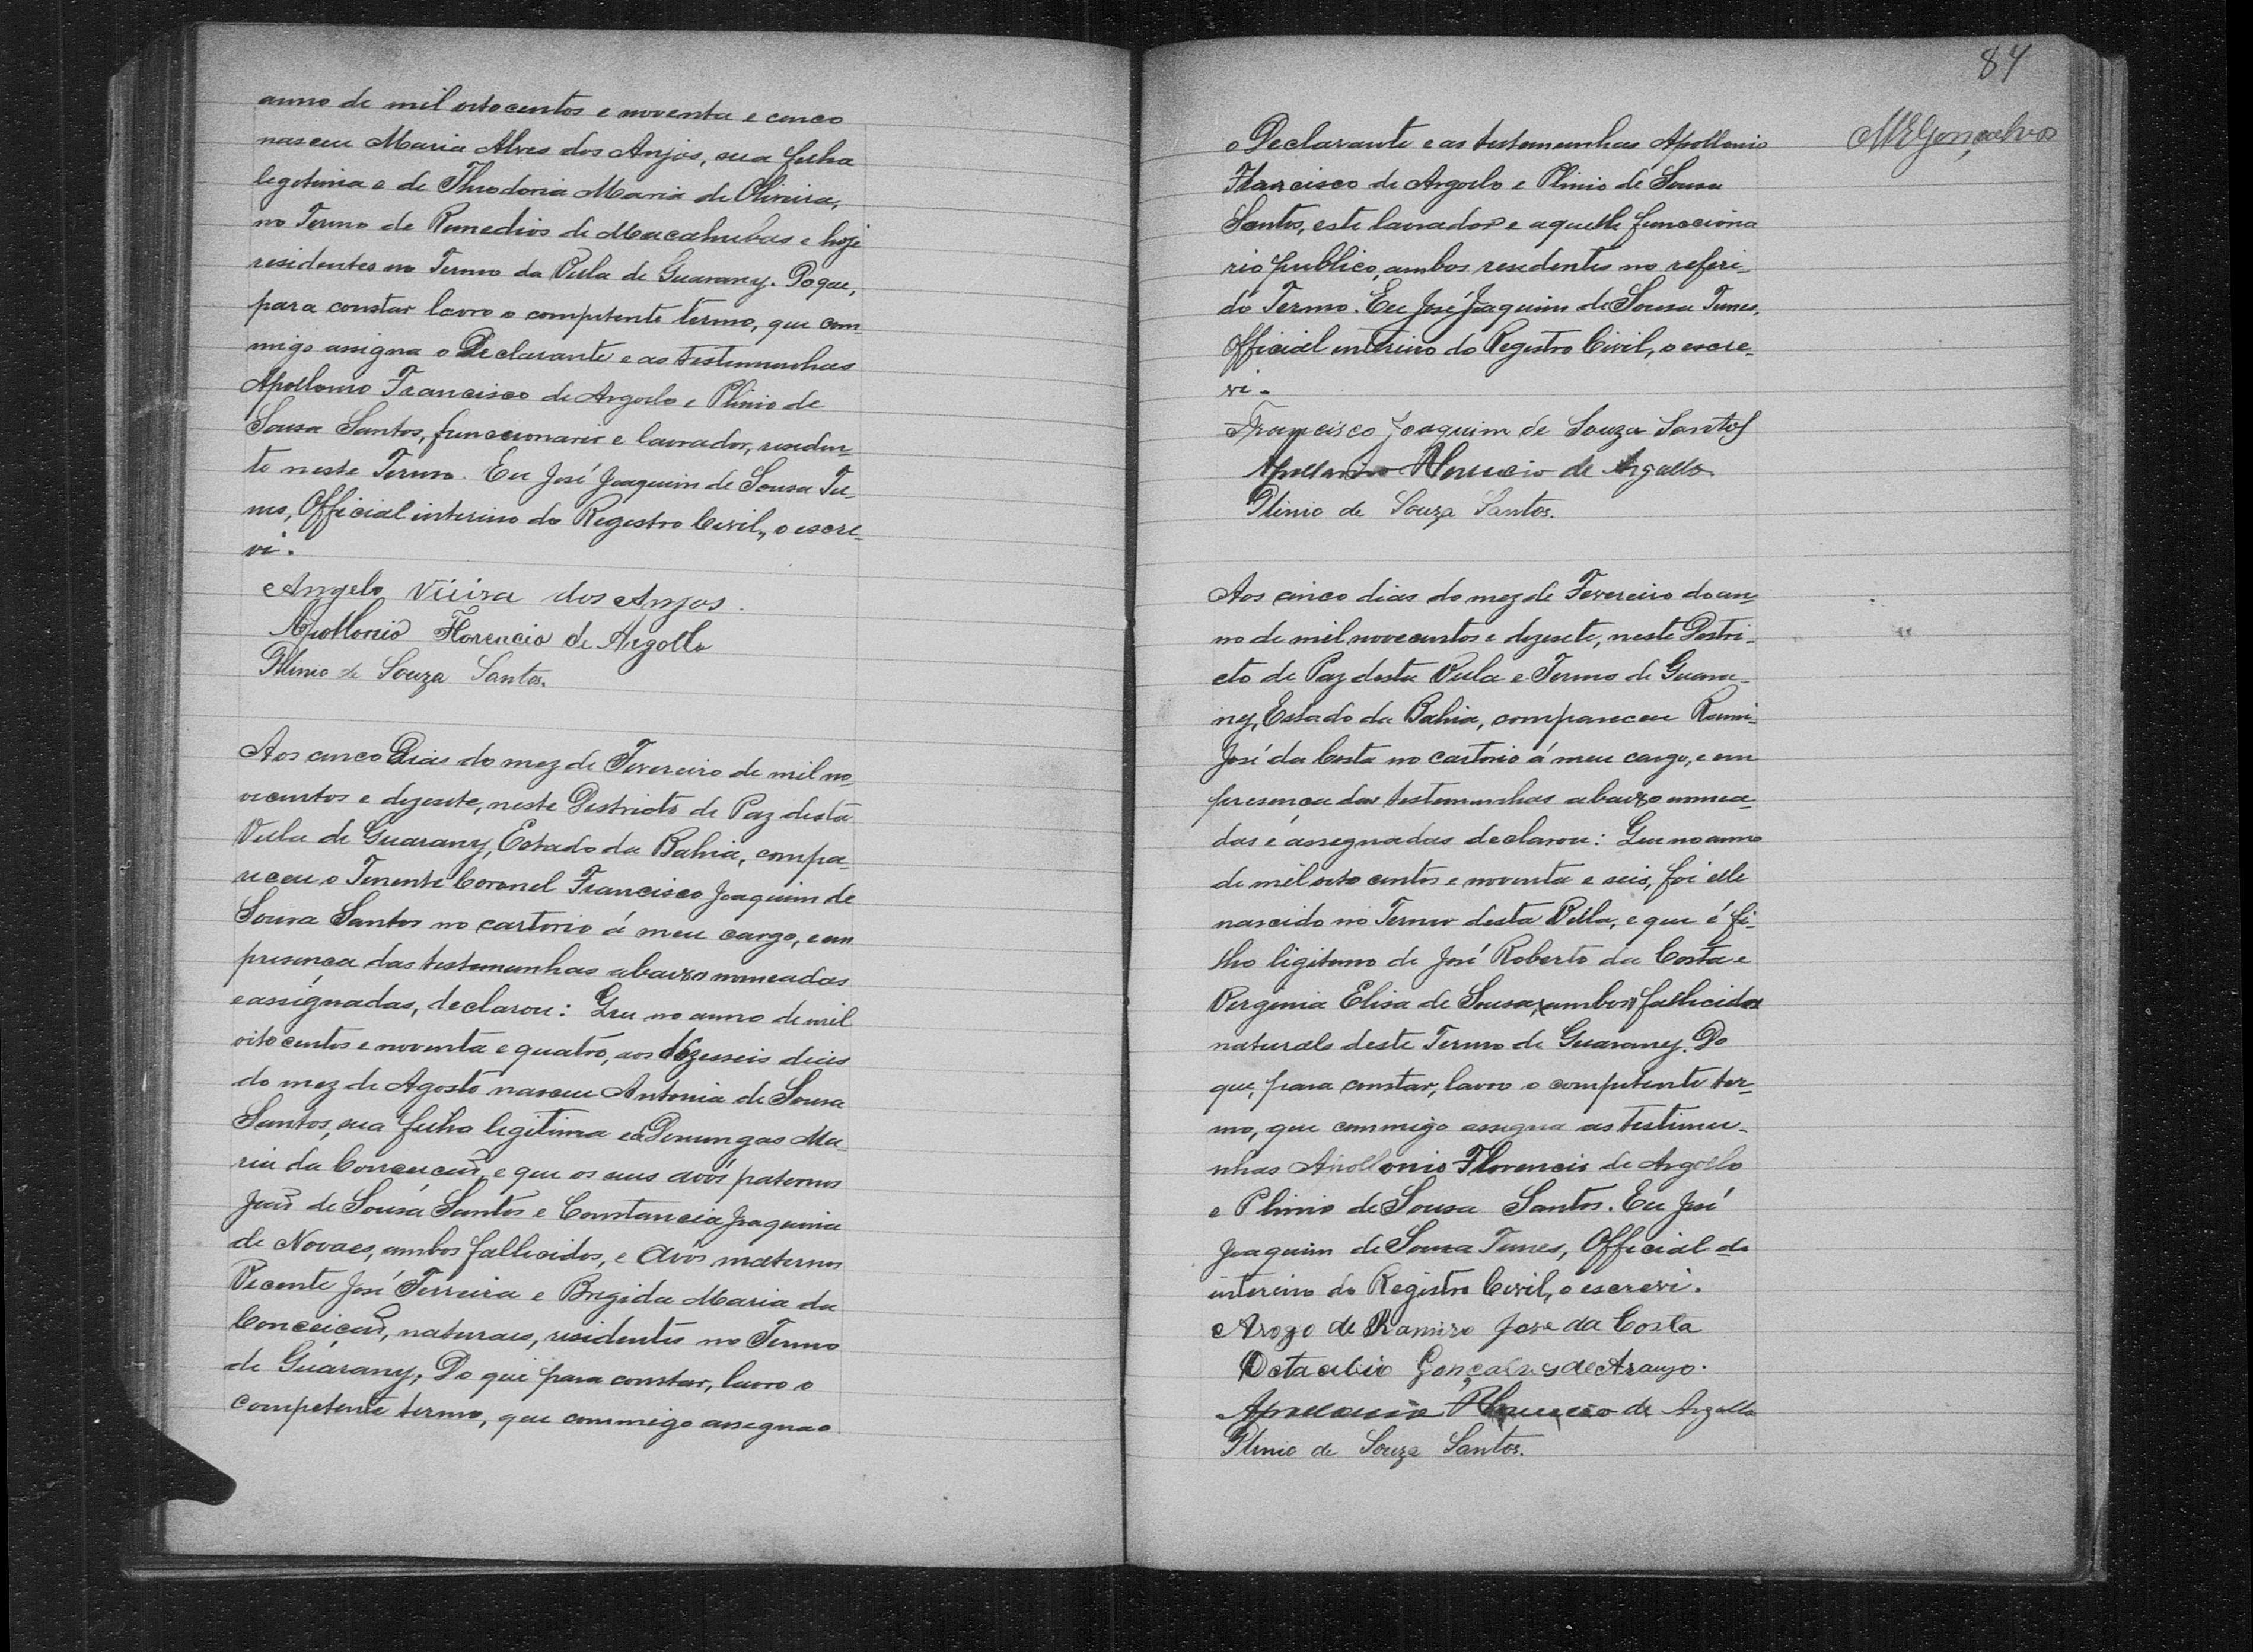 anno de mil oito centos e noventa e cinco
nasceu Maria Alves dos Anjos, sua filha
legitima e de Theodoria Maria de Oliveira,
no Termo de Remedios de Macahubas e hoje
residentes no Termo da Villa de Guarany. Do que,
para constar lavro o competente termo, que com
migo assigna o Declarante e as testemunhas
Apollonio Francisco de Argollo e Plinio de
Sousa Santos, funccionario e lavrador, residen-
te neste Termo. Eu José Joaquim de Sousa Tu-
nes, Official interino do Registro Civil, o escre-
vi.
Angelo Vieira dos Anjos.
Apollonio Florencio de Argollo
Plinio de Souza Santos.
Aos cinco Dias do mez de Fevereiro de mil no-
vecentos e dezesete, neste Districto de Paz desta
Villa de Guarany, Estado da Bahia, compa-
receu o Tenente Coronel Francisco Joaquim de
Sousa Santos no cartorio á meu cargo, e em
presença das testemunhas abaixo nomeadas
e assignadas, declarou: Que no anno de mil
oito centos e noventa e quatro, aos dezesseis dias
do mez de Agosto nasceu Antonia de Sousa
Santos, sua filha legitima e de Domingas Ma-
ria da Conceição, e que os seus avós paternos
João de Sousa Santos e Constancia Joaquina
de Novaes, ambos fallecidos, e Avós maternos
Vicente José Ferreira e Brigida Maria da
Conceição, naturaes, residentes no Termo
de Guarany. Do que para constar, lavro o
competente termo, que commigo assigna o
84
MEGonçalves
o Declarante e as testemunhas Apollonio
Francisco de Argollo e Plinio de Sousa
Santos, este lavrador e aquelle funcciona
rio publico, ambos residentes no referi-
do Termo. Eu José Joaquim de Sousa Tunes,
Official interino do Registro Civil, o escre-
vi.
Francisco Joaquim de Souza Santos
Apollonio Florencio de Argollo
Plinio de Souza Santos.
Aos cinco dias do mez de Fevereiro do an-
no de mil novecentos e dezesete, neste Destri-
cto de Paz desta Villa e Termo de Guara-
ny, Estado da Bahia, compareceu Rami-
José da Costa no cartorio á meu cargo, e em
presença das testemunhas abaixo nomea-
das e assegnadas declarou: Que no anno
de mil oito centos e noventa e seis, foi elle
nascido no Termo desta Villa, e que é fi-
lho ligitimo de José Roberto da Costa e
Verginia Elisa de Sousa, (ambos) fallicidos
naturals deste Termo de Guarany. Do
que, para constar, lavro o competente ter-
mo, que commigo assigna as testimu-
nhas Apollonio Florencio de Argollo
e Plinio de Sousa Santos. Eu José
Joaquim de Sousa Tunes, Official do
interino do Registro Civil, o escrevi.
Arogo de Ramiro Jose da Costa
Octacilio Gonçalves de Araujo.
Apollonio Florencio de Argollo
Plinio de Souza Santos.